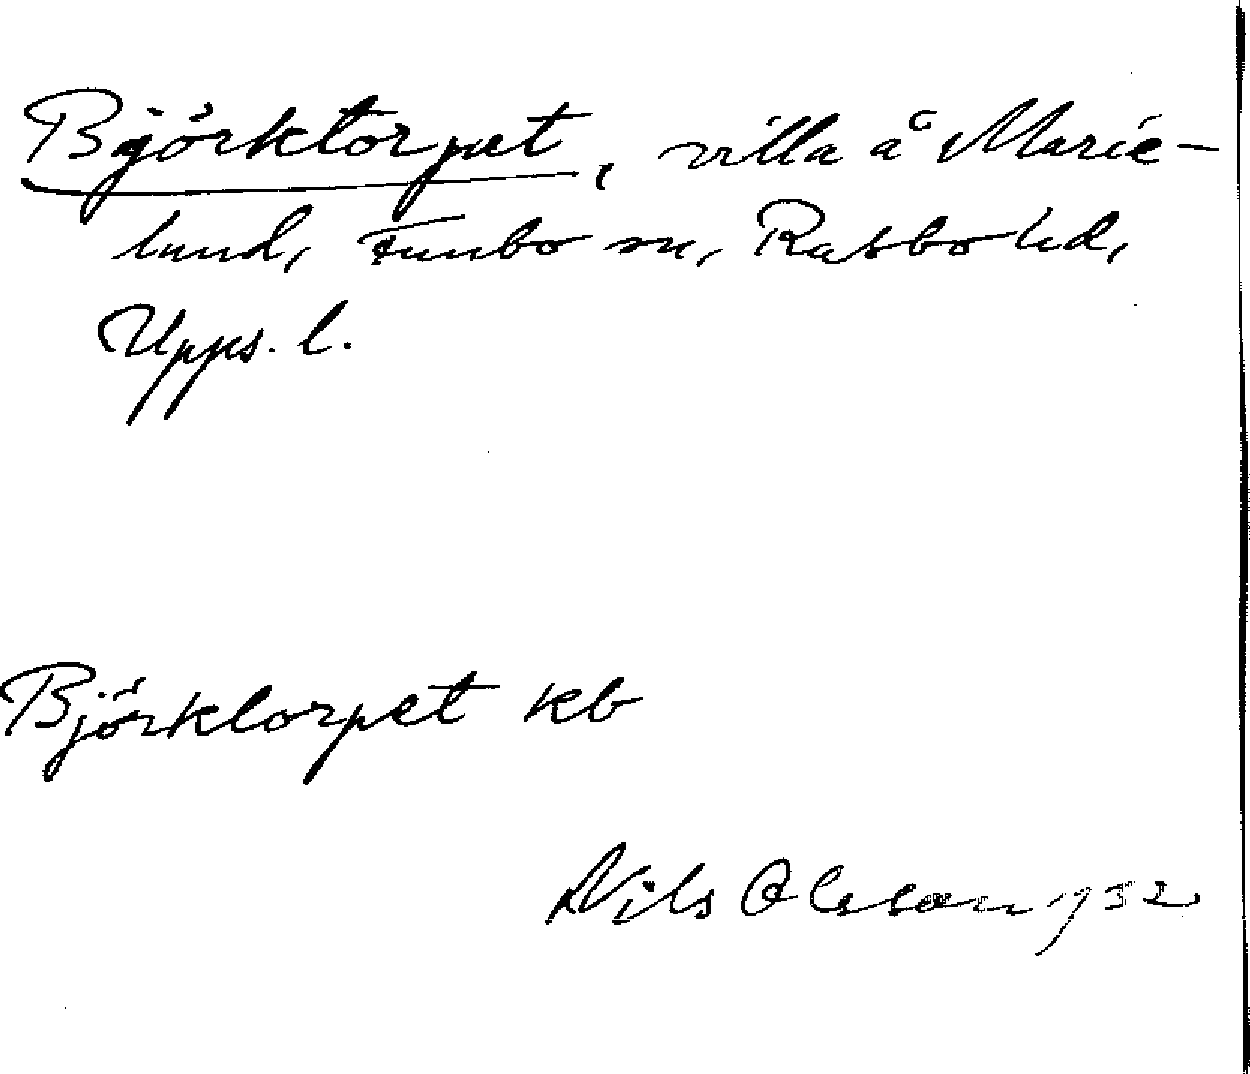 Björktorpet, villa å Marie-
lund, Funbo sn, Rasbo hd,
Upps. l.
Björktorpet kb
Nils Olsson 1932